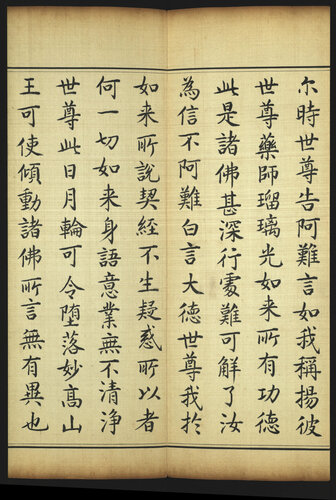 尒時世尊告阿難言如我稱揚彼
世尊藥師瑠璃光如来所有功德
此是諸佛甚深行處難可解了汝
為信不阿難白言大德世尊我於
如来所說契經不生疑惑所以者
何一切如来身語意業無不清淨
世尊此日月輪可令墮落妙髙山
王可使傾動諸佛所言無有異也